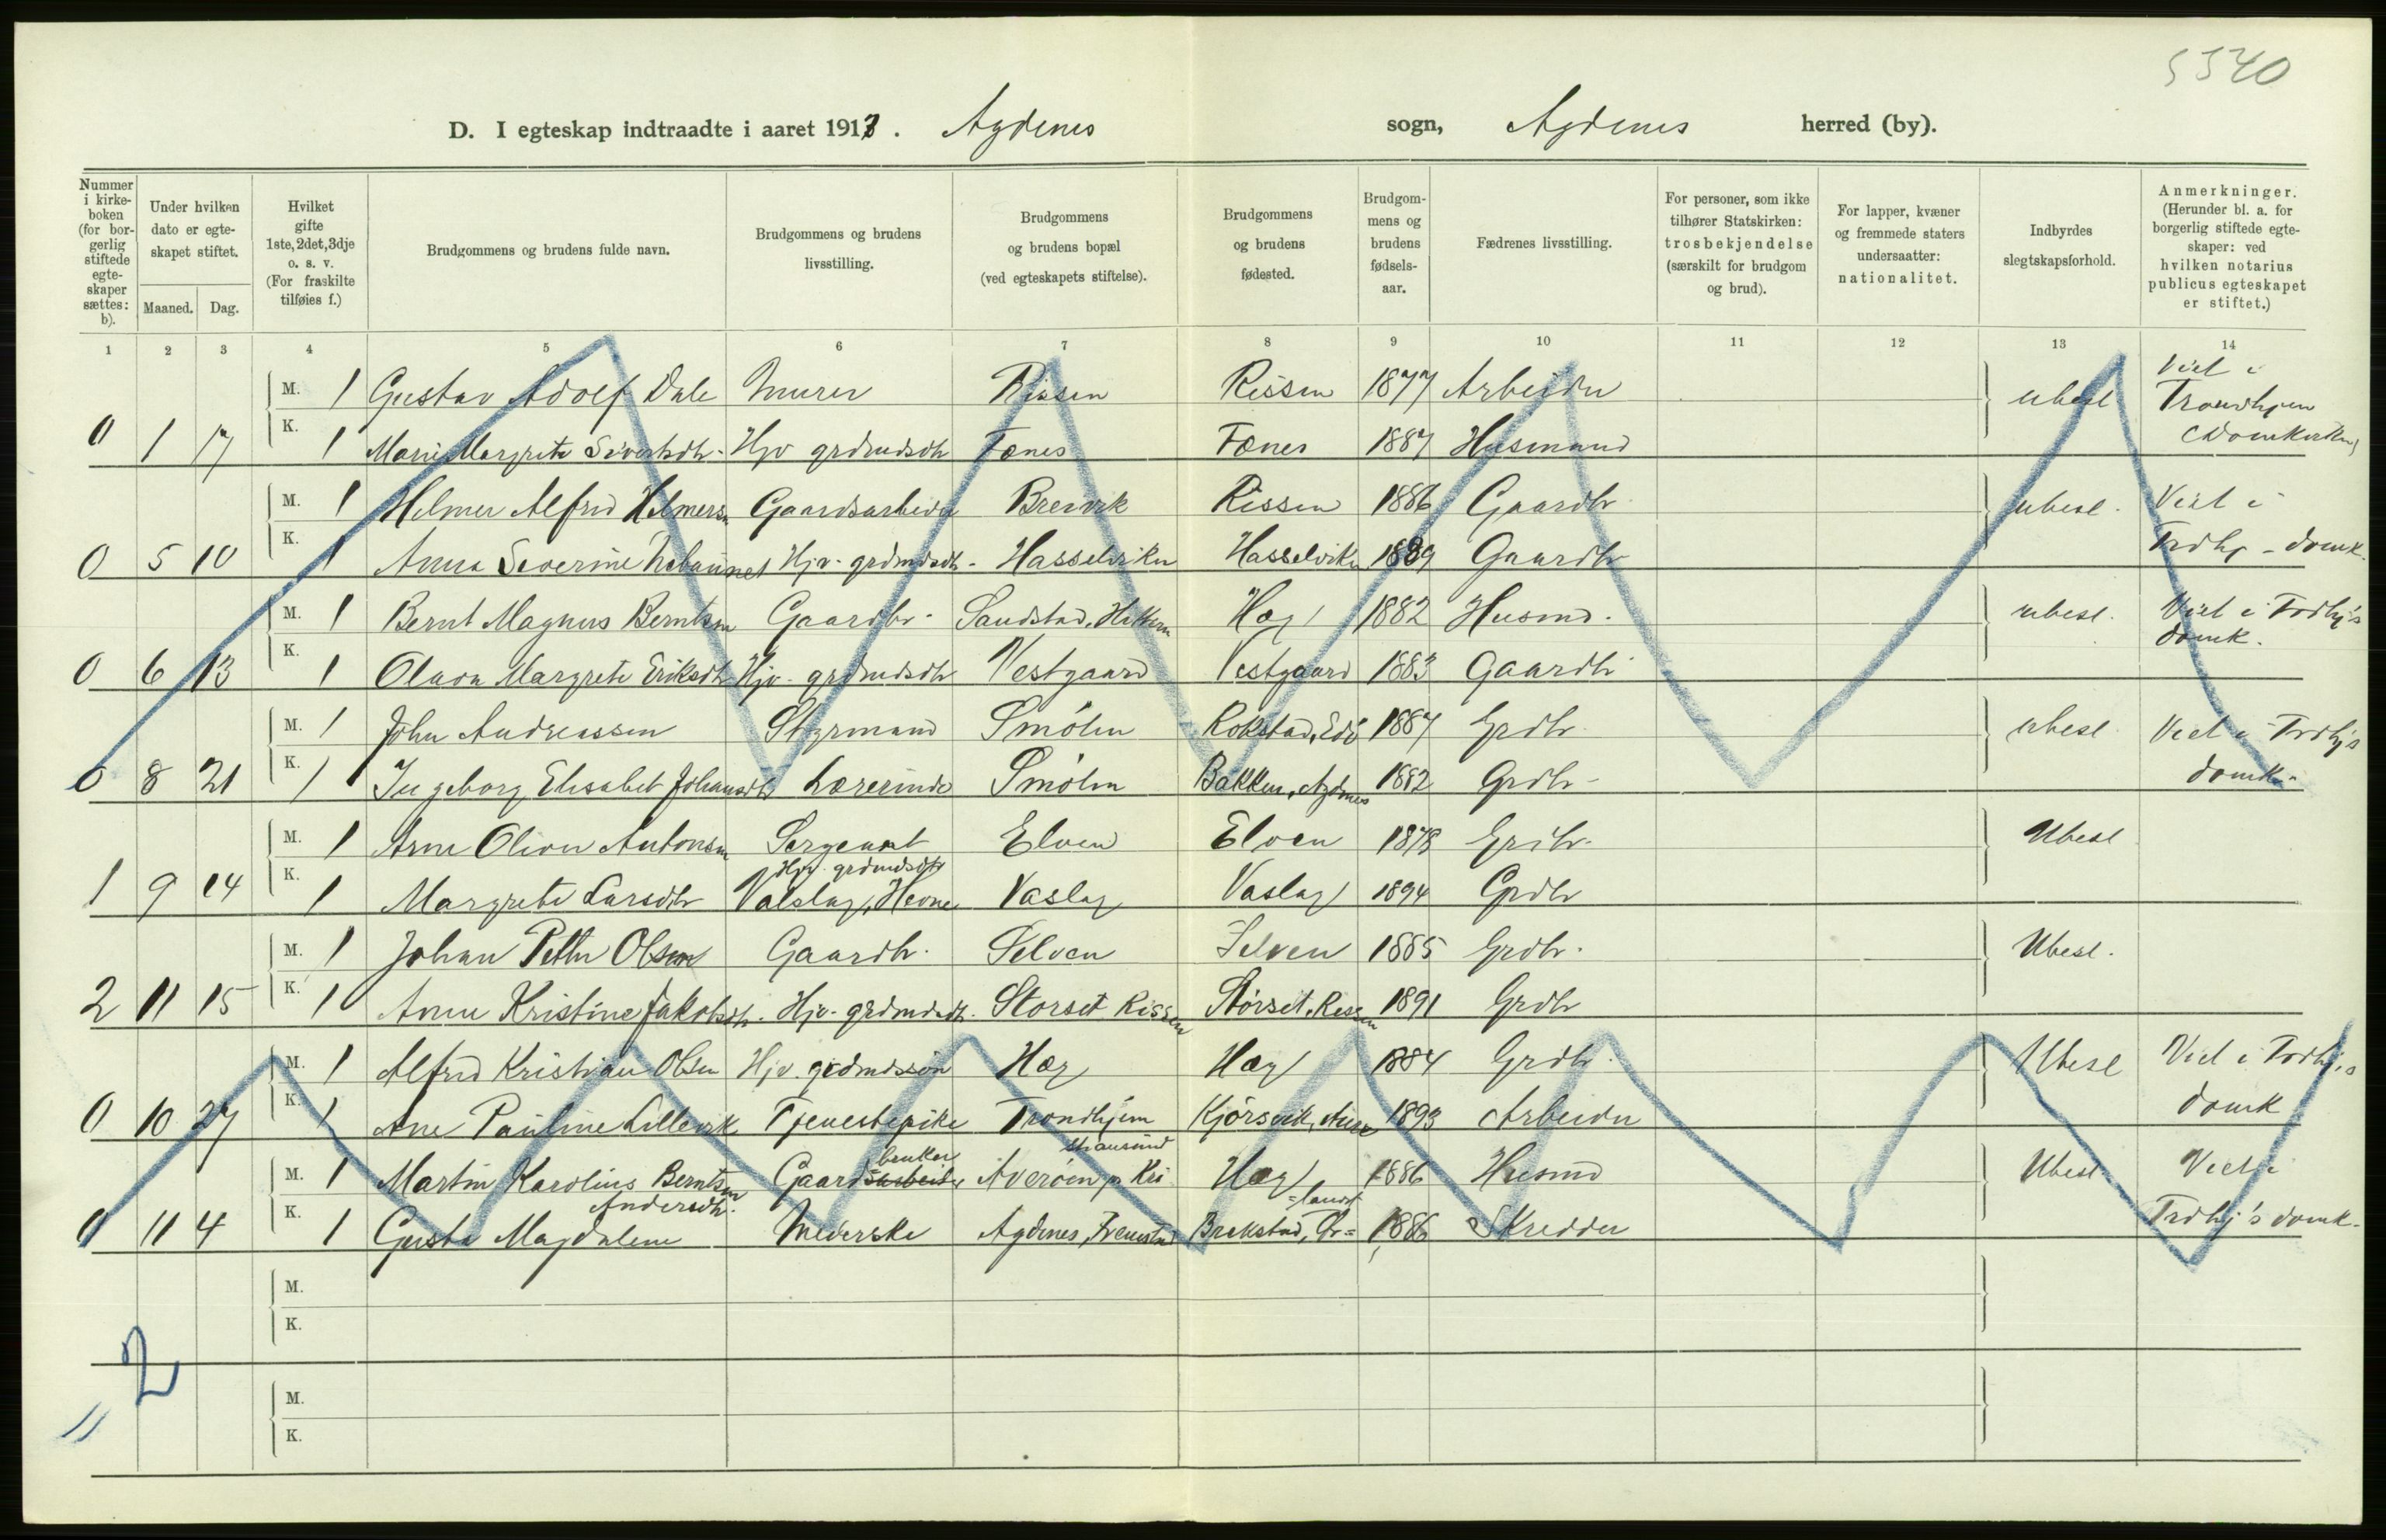 5340
D. I egteskap indtraadte i aaret 1913. Agdenes sogn, Agdenes herred (by).
Nummer i kirke-boken (for bor-gerlig stiftede egte-skaper sættes: b).
Under hvilken dato er egte-skapet stiftet.
Maaned. Dag.
Hvilket gifte 1ste, 2det, 3dje o. s. v. (For fraskilte tilføies f.)
Brudgommens og brudens fulde navn.
Brudgommens og brudens livsstilling.
Brudgommens og brudens bopæl (ved egteskapets stiftelse).
Brudgommens og brudens fødested.
Brudgom-mens og brudens fødsels-aar.
Fædrenes livsstilling.
For personer, som ikke tilhører Statskirken: trosbekjendelse (særskilt for brudgom og brud).
For lapper, kvæner og fremmede staters undersaatter: nationalitet.
Indbyrdes slegtskapsforhold.
Anmerkninger. (Herunder bl. a. for borgerlig stiftede egte-skaper: ved hvilken notarius publicus egteskapet er stiftet.)
1 2 3 4 5 6 7 8 9 10 11 12 13 14
M. 1 Gustav Adolf Dale Murer Rissen Rissen 1877 Arbeider ubesl Viet i Trondhjem (Domkirken)
0 1 17 K. 1 Marie Margrete Sivertsdtr. Hjv grdmdsdtr Fænes Fænes 1887 Husmand
M. 1 Hilmer Alfred Hilmersn Gaardsarbeider Breivik Rissen 1886 Gaardbr ubesl. Viet i
0 5 10 K. 1 Anna Severine Hjv. grdmdsdtr. Hasselviken Hasselviken 1889 Gaardbr Trdhj - domk.
M. 1 Bernt Magnus Berntsen Gaardbr. Sandstad, Hitteren Hæg 1882 Husmd. ubesl. Viet i Trdhj's domk.
0 6 13 K. 1 Olava Margrete Eriksdtr Hjv. grdmdsdtr Vestgaard Vestgaard 1883 Gaardbr
M. 1 John Andreassen Styrmand Smölen Rokstad, Edö 1887 Grdbr ubesl. Viet i Trdhj's
0 8 21 K. 1 Ingeborg Elisabet Johansdtr Lærerinde Smölen Bakken, Agdenes 1882 Grdbr - domk.
M. 1 Arne Oliver Antonsen Sergeant Elven Elven 1878 Grdbr. Ubesl
1 9 14 K. 1 Margrete Larsdtr Hjv. grdmdsdtr Valslag, Hevne Vaslag Vaslag 1894 Grdbr
M. 1 Johan Petter Olsen Gaardbr. Selven Selven 1885 Grdbr. Ubesl.
2 11 15 K. 1 Anne Kristine Jakobsdtr. Hjv. grdmdsdtr. Storset Rissen Störset, Rissen 1891 Grdbr
M. 1 Alfred Kristian Olsen Hjv. grdmdssön Hæg Hæg 1884 Grdbr. Ubesl Viet i Trdhj.s
0 10 27 K. 1 Ane Pauline Lillevik Tjenestepike Trondhjem Kjörsvik, Aure 1893 Arbeider domk
M. 1 Martin Karolius Berntsen Gaardsarbeider bruker Averöen p. Kristiansund Hæg 1886 Husmd Ubesl. Viet i
0 11 4 K. 1 Gusta Magdalene Andersdtr. Meierske Agdenes, Brekstad, Ør=landet 1886 Skredder Trdhj's domk.
M.
K.
M.
K.
2